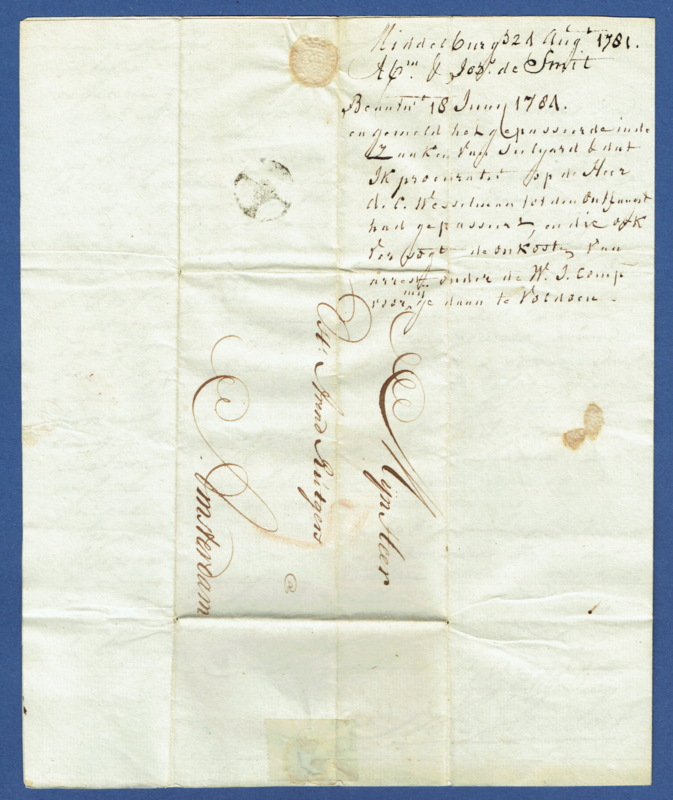 Middelburg 21 Augt 1781.
Abm. & Josa. de Smit
Beantw. 18 Juny 1784.
en gemeld het gepasseerde inde
Zaaken van & dat
Ik procuratie op de Heer
de C. Wesselman tot den Ontfangst
had gepasseert, en die ook
Versogt de onkosten Van
arrest onder de W. I. Comp
voor mij ge daan te Voldoen.
Mijn Heer
Hr. Arend Rutgers
@
Amsterdam